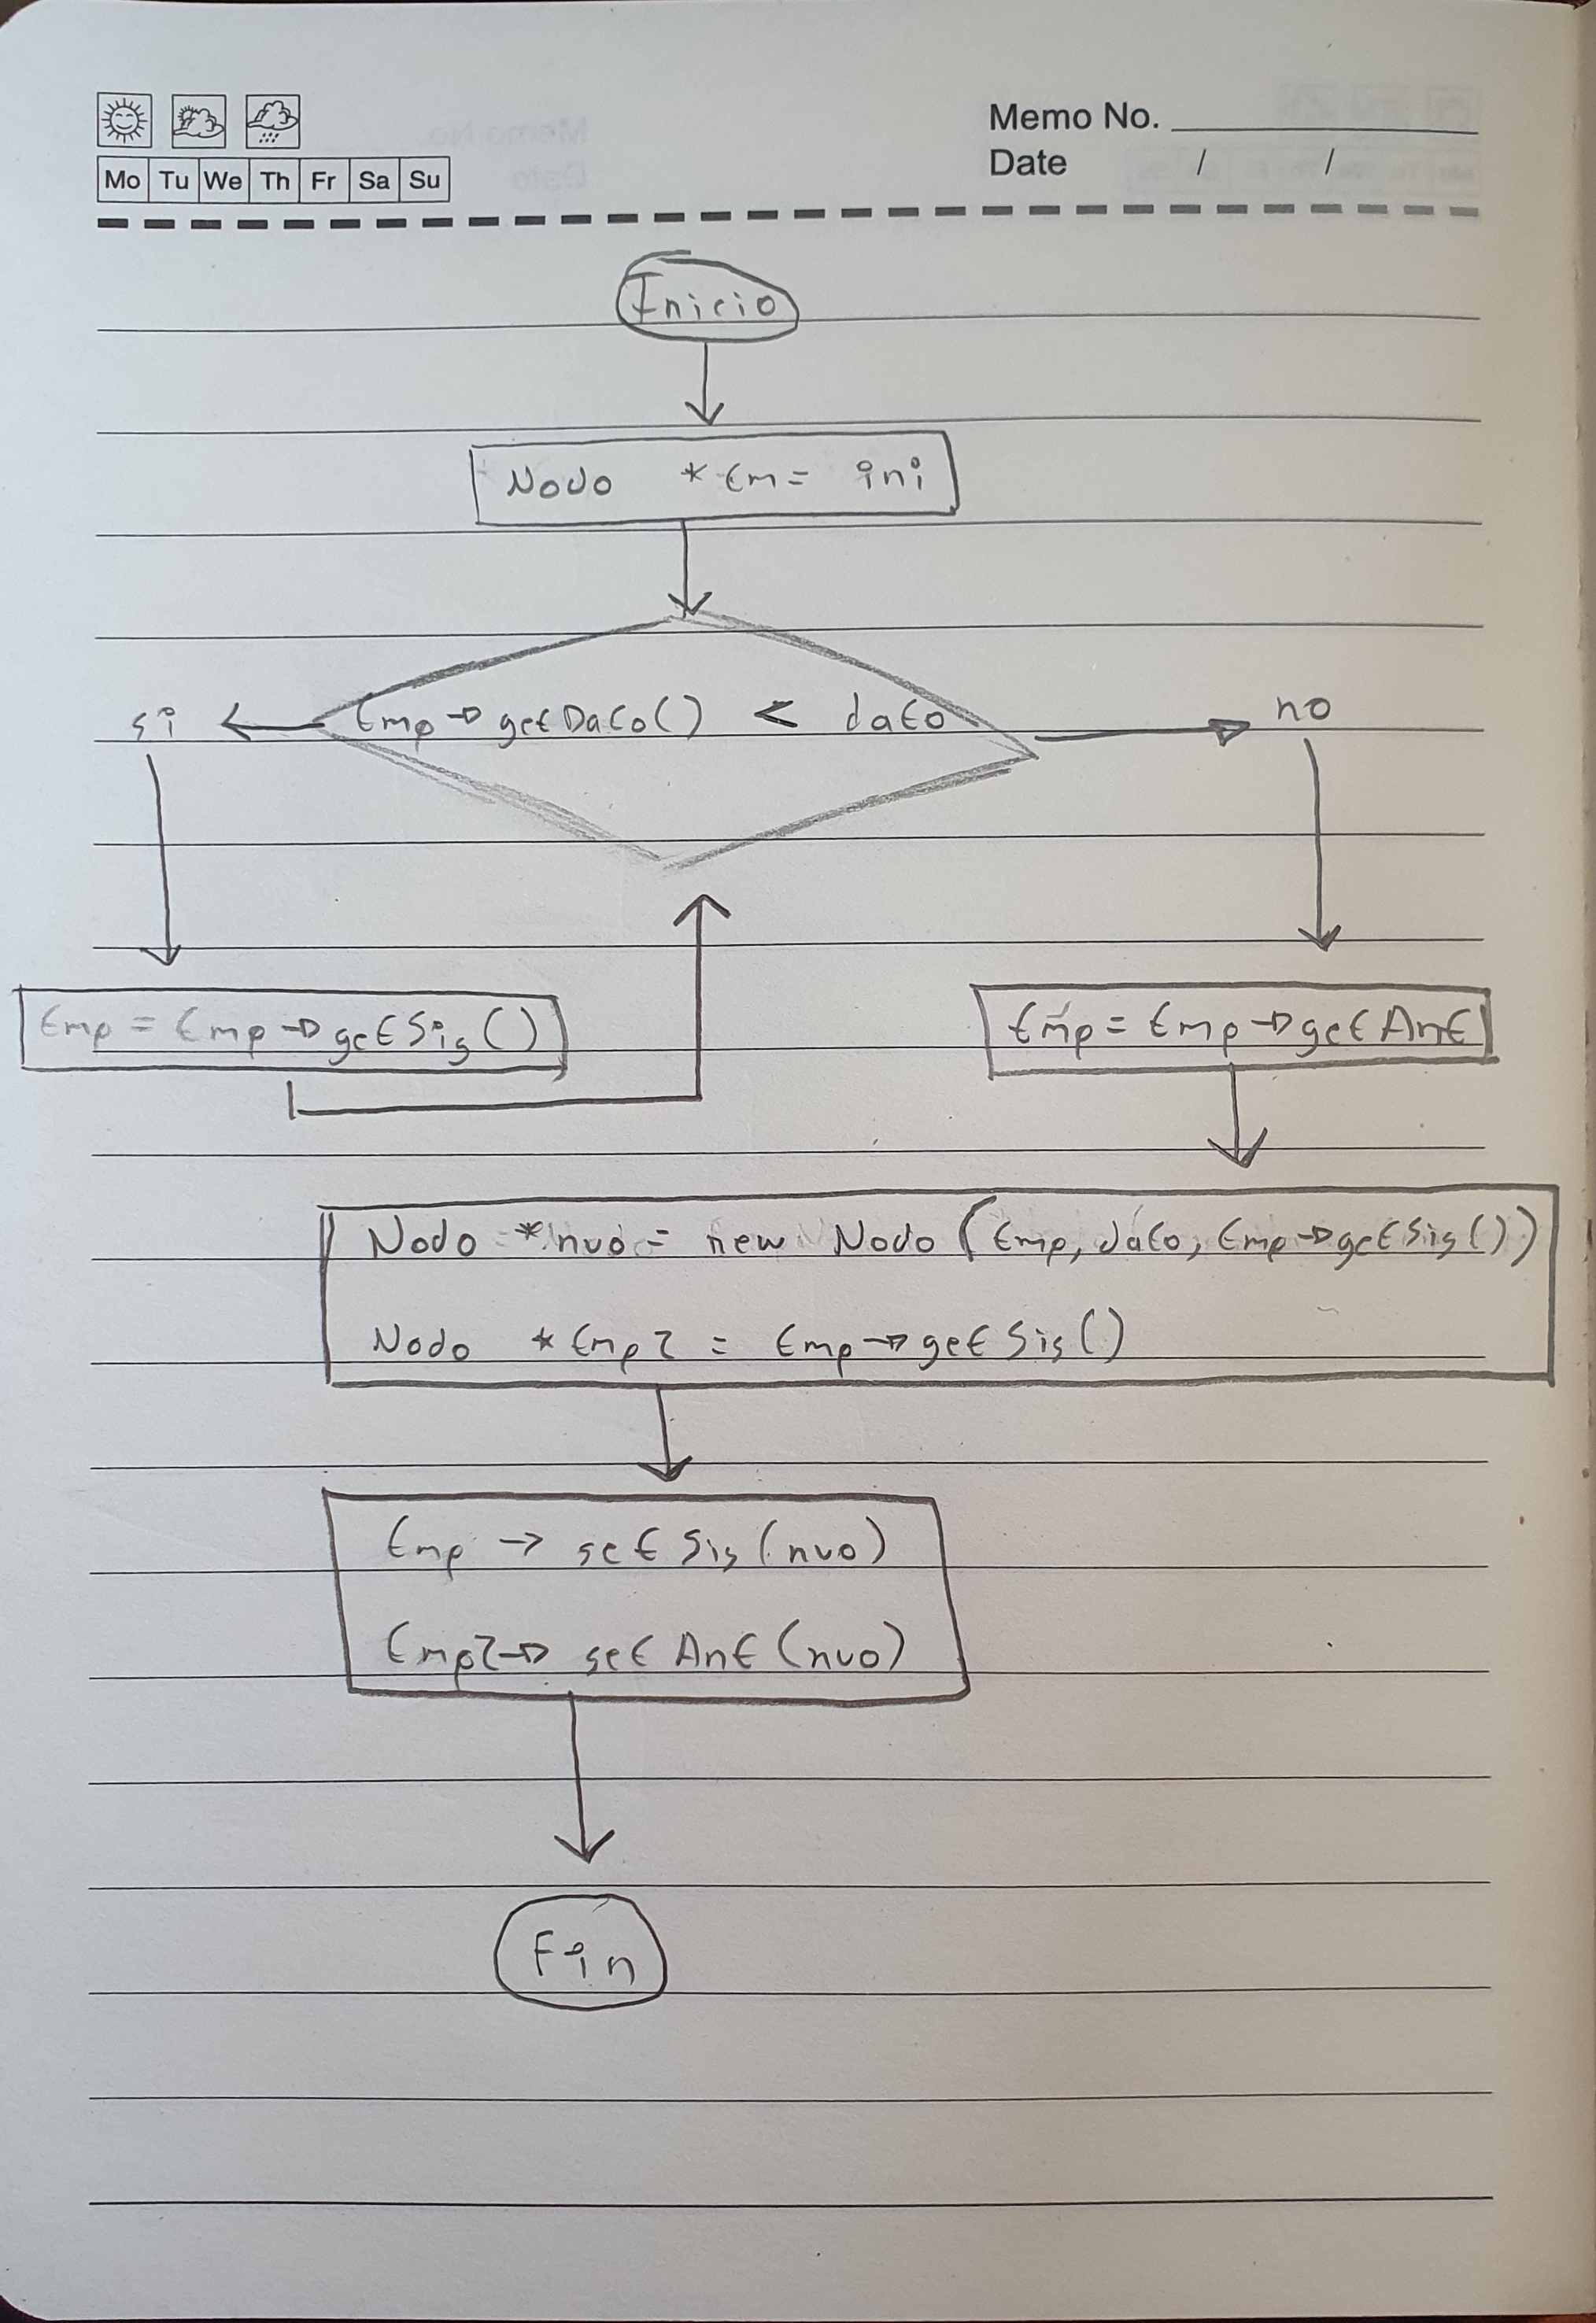 Memo No.
Mo Tu We Th Fr Sa Su
Date / /
Inicio
Nodo *tm= ini
si
tmp->getDato() < dato
no
tmp = tmp->getSig()
tmp = tmp->getAnt
Nodo *nvo = new Nodo (tmp, dato, tmp->getSig())
Nodo *tmp2 = tmp->getSig()
tmp -> setSig (nvo)
tmp2-> setAnt (nvo)
Fin